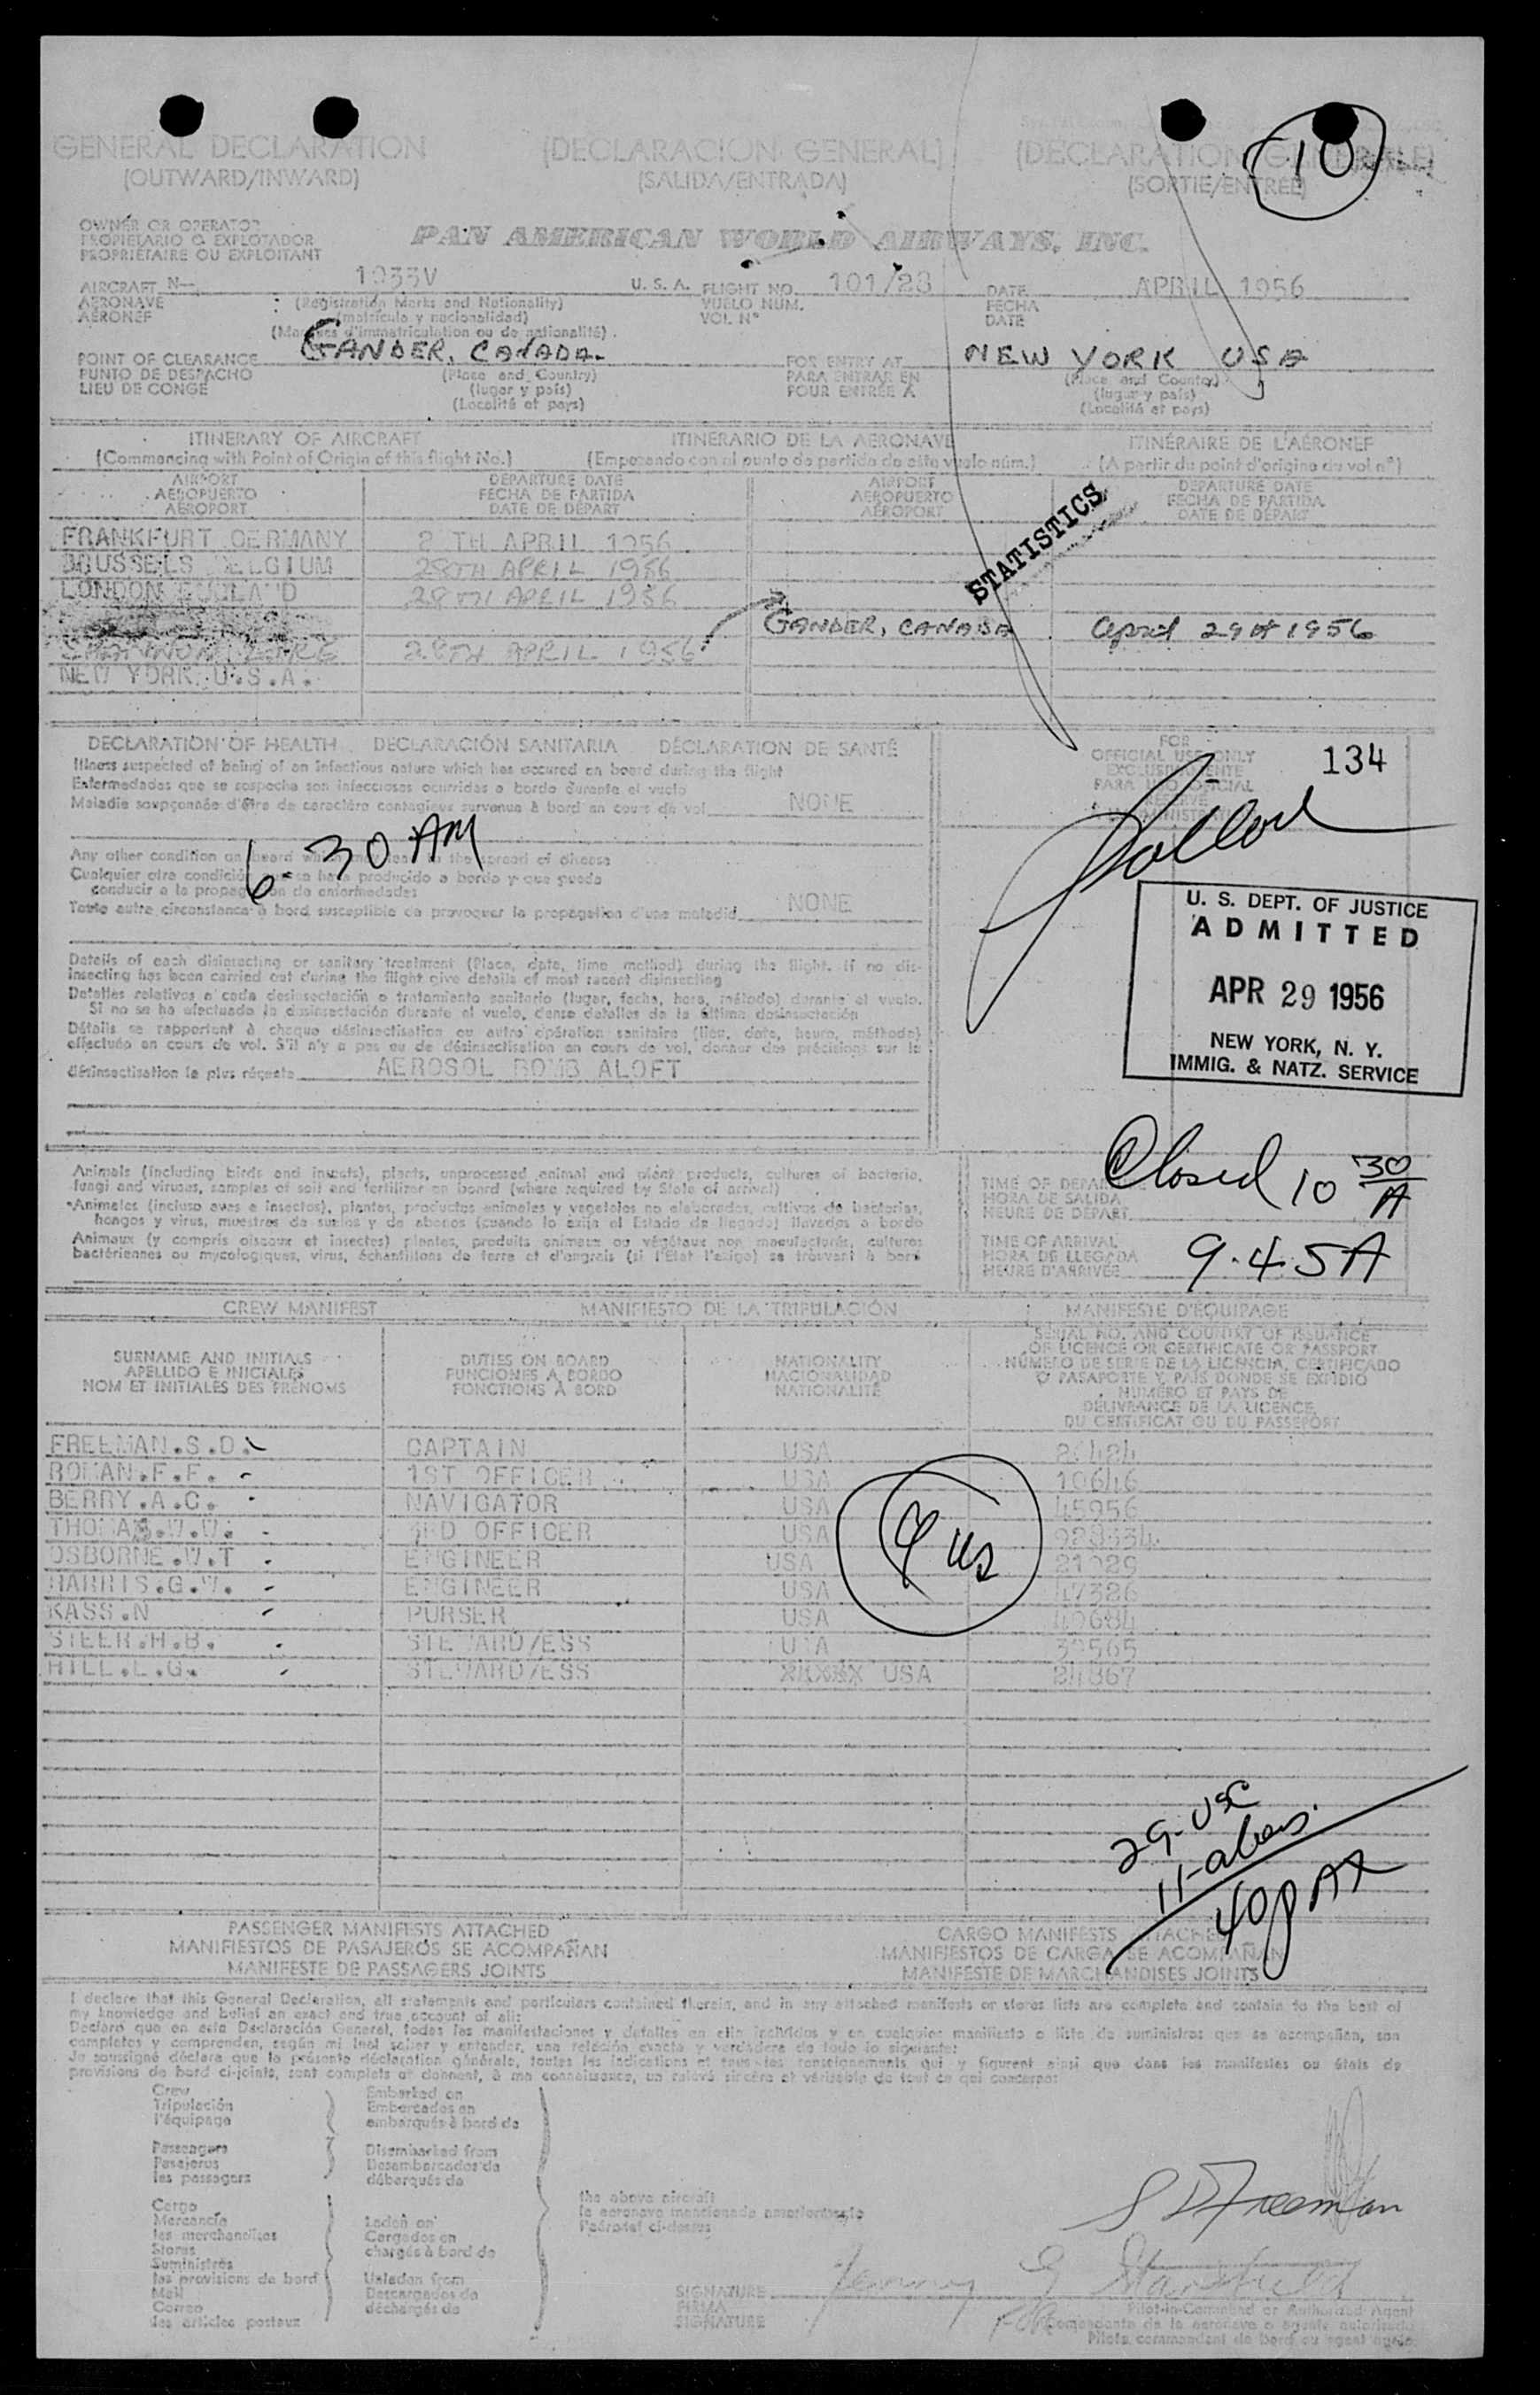 10
GENERAL DECLARATION (DECLARACION GENERAL) (DECLARATION
(OUTWARD/INWARD) (SALIDA/ENTRADA) (SORTIE/ENTRÉE)
OWNER OR OPERATOR
PROPIETARIO O EXPLOTADOR
PROPRIÉTAIRE OU EXPLOITANT
PAN AMERICAN WORLD AIRWAYS, INC.
AIRCRAFT N— 1033V U. S. A. FLIGHT NO. 101/28 DATE APRIL 1956
AERONAVE (Registration Marks and Nationality) VUELO NUM. FECHA
AÉRONEF (matrícula y nacionalidad) VOL N° DATE
(Marques d'immatriculation ou de nationalité)
POINT OF CLEARANCE GANDER, CANADA. FOR ENTRY AT NEW YORK USA
PUNTO DE DESPACHO (Place and Country) PARA ENTRAR EN (Place and Country)
LIEU DE CONGÉ (lugar y país) POUR ENTRÉE À (lugar y país)
(Localité et pays) (Localité et pays)
ITINERARY OF AIRCRAFT ITINERARIO DE LA AERONAVE ITINÉRAIRE DE L'AÉRONEF
(Commencing with Point of Origin of this flight No.) (Empezando con el punto de partida de este vuelo núm.) (A partir du point d'origine du vol n°)
AIRPORT DEPARTURE DATE AIRPORT DEPARTURE DATE
AEROPUERTO FECHA DE PARTIDA AEROPUERTO FECHA DE PARTIDA
AÉROPORT DATE DE DÉPART AÉROPORT DATE DE DÉPART
STATISTICS
FRANKFURT GERMANY 2 TH APRIL 1956
BRUSSELS BELGIUM 28TH APRIL 1956
LONDON ENGLAND 28TH APRIL 1956
GANDER, CANADA April 29th 1956
SHANNON EIRE 28TH APRIL 1956
NEW YORK. U.S.A.
DECLARATION OF HEALTH DECLARACIÓN SANITARIA DÉCLARATION DE SANTÉ
Illness suspected of being of an infectious nature which has occured on board during the flight
Enfermedades que se sospecha son infecciosas ocurridas a bordo durante el vuelo
Maladie soupçonnée d'être de caractère contagieux survenue à bord au cours de vol NONE
FOR
OFFICIAL USE ONLY
134
6-30 AM
Any other condition on board which may lead to the spread of disease
Cualquier otra condición que se haya producido a bordo y que pueda
conducir a la propagación de enfermedades
Toute autre circonstance à bord susceptible de provoquer la propagation d'une maladie NONE
U. S. DEPT. OF JUSTICE
ADMITTED
APR 29 1956
NEW YORK, N. Y.
IMMIG. & NATZ. SERVICE
Details of each disinsecting or sanitary treatment (Place, date, time method) during the flight. If no dis-
insecting has been carried out during the flight give details of most recent disinsecting
Detalles relativos a cada desinsectación o tratamiento sanitario (lugar, fecha, hora, método) durante el vuelo.
Si no se ha efectuado la desinsectación durante el vuelo, dense detalles de la última desinsectación
Détails se rapportent à chaque désinsectisation ou autre opération sanitaire (lieu, date, heure, méthode)
effectuée en cours de vol. S'il n'y a pas eu de désinsectisation en cours de vol, donner des précisions sur la
désinsectisation la plus récente AEROSOL BOMB ALOFT
Animals (including birds and insects), plants, unprocessed animal and plant products, cultures of bacteria,
fungi and viruses, samples of soil and fertilizer on board (where required by State of arrival)
Animales (incluso aves e insectos), plantas, productos animales y vegetales no elaborados, cultivos de bacterias,
hongos y virus, muestras de suelos y de abonos (cuando lo exija el Estado de llegada) llevados a bordo
Animaux (y compris oiseaux et insectes) plantes, produits animaux ou végétaux non manufacturés, cultures
bactériennes ou mycologiques, virus, échantillons de terre et d'engrais (si l'État l'exige) se trouvant à bord
Closed 10 30/A
HORA DE SALIDA
HEURE DE DÉPART
TIME OF ARRIVAL
HORA DE LLEGADA
HEURE D'ARRIVÉE
9.45A
CREW MANIFEST MANIFIESTO DE LA TRIPULACIÓN MANIFESTE D'ÉQUIPAGE
SURNAME AND INITIALS DUTIES ON BOARD NATIONALITY SERIAL NO. AND COUNTRY OF ISSUANCE
APELLIDO E INICIALES FUNCIONES A BORDO NACIONALIDAD OF LICENCE OR CERTIFICATE OR PASSPORT
NOM ET INITIALES DES PRÉNOMS FONCTIONS À BORD NATIONALITÉ NÚMERO DE SERIE DE LA LICENCIA, CERTIFICADO
O PASAPORTE Y PAÍS DONDE SE EXPIDIÓ
NUMÉRO ET PAYS DE
DÉLIVRANCE DE LA LICENCE,
DU CERTIFICAT OU DU PASSEPORT
FREEMAN.S.D. CAPTAIN USA
ROMAN.F.F. 1ST OFFICER USA 10646
BERRY.A.C. NAVIGATOR USA 45956
THOMAS.W.W. 3RD OFFICER USA
OSBORNE.W.T ENGINEER USA 21029
HARRIS.G.W. ENGINEER USA 47326
KASS.N PURSER USA
STEER.H.B. STEWARD/ESS
HILL.L.G. STEWARD/ESS USA
9 us
29-USC
11-aliens
40 PAX
PASSENGER MANIFESTS ATTACHED CARGO MANIFESTS ATTACHED
MANIFIESTOS DE PASAJEROS SE ACOMPAÑAN MANIFIESTOS DE CARGA SE ACOMPAÑAN
MANIFESTE DE PASSAGERS JOINTS MANIFESTE DE MARCHANDISES JOINTS
I declare that this General Declaration, all statements and particulars contained therein, and in any attached manifests or stores lists are complete and contain to the best of
my knowledge and belief an exact and true account of all:
Declaro que en esta Declaración General, todas las manifestaciones y detalles en ella incluidos y en cualquier manifiesto o lista de suministros que se acompañan, son
completos y comprenden, según mi leal saber y entender, una relación exacta y verdadera de todo lo siguiente:
Je soussigné déclare que la présente déclaration générale, toutes les indications et tous les renseignements qui y figurent ainsi que dans les manifestes ou états de
provisions de bord ci-joints, sont complets et donnent, à ma connaissance, un relevé sincère et véritable de tout ce qui concerne:
Crew Embarked on
Tripulación Embarcados en
l'équipage embarqués à bord de
Passengers Disembarked from
Pasajeros Desembarcados de
les passagers débarqués de
the above aircraft
la aeronave mencionada anteriormente
l'aéronef ci-dessus
Cargo
Mercancía Laden on
les marchandises Cargados en
Stores chargés à bord de
Suministros
les provisions de bord Unladen from
Mail Descargados de
Correo déchargés de
les articles postaux
S D Freeman
SIGNATURE
FIRMA
SIGNATURE
Pilot-in-Command or Authorized Agent
Comandante de la aeronave o agente autorizado
Pilote commandant de bord ou agent agréé